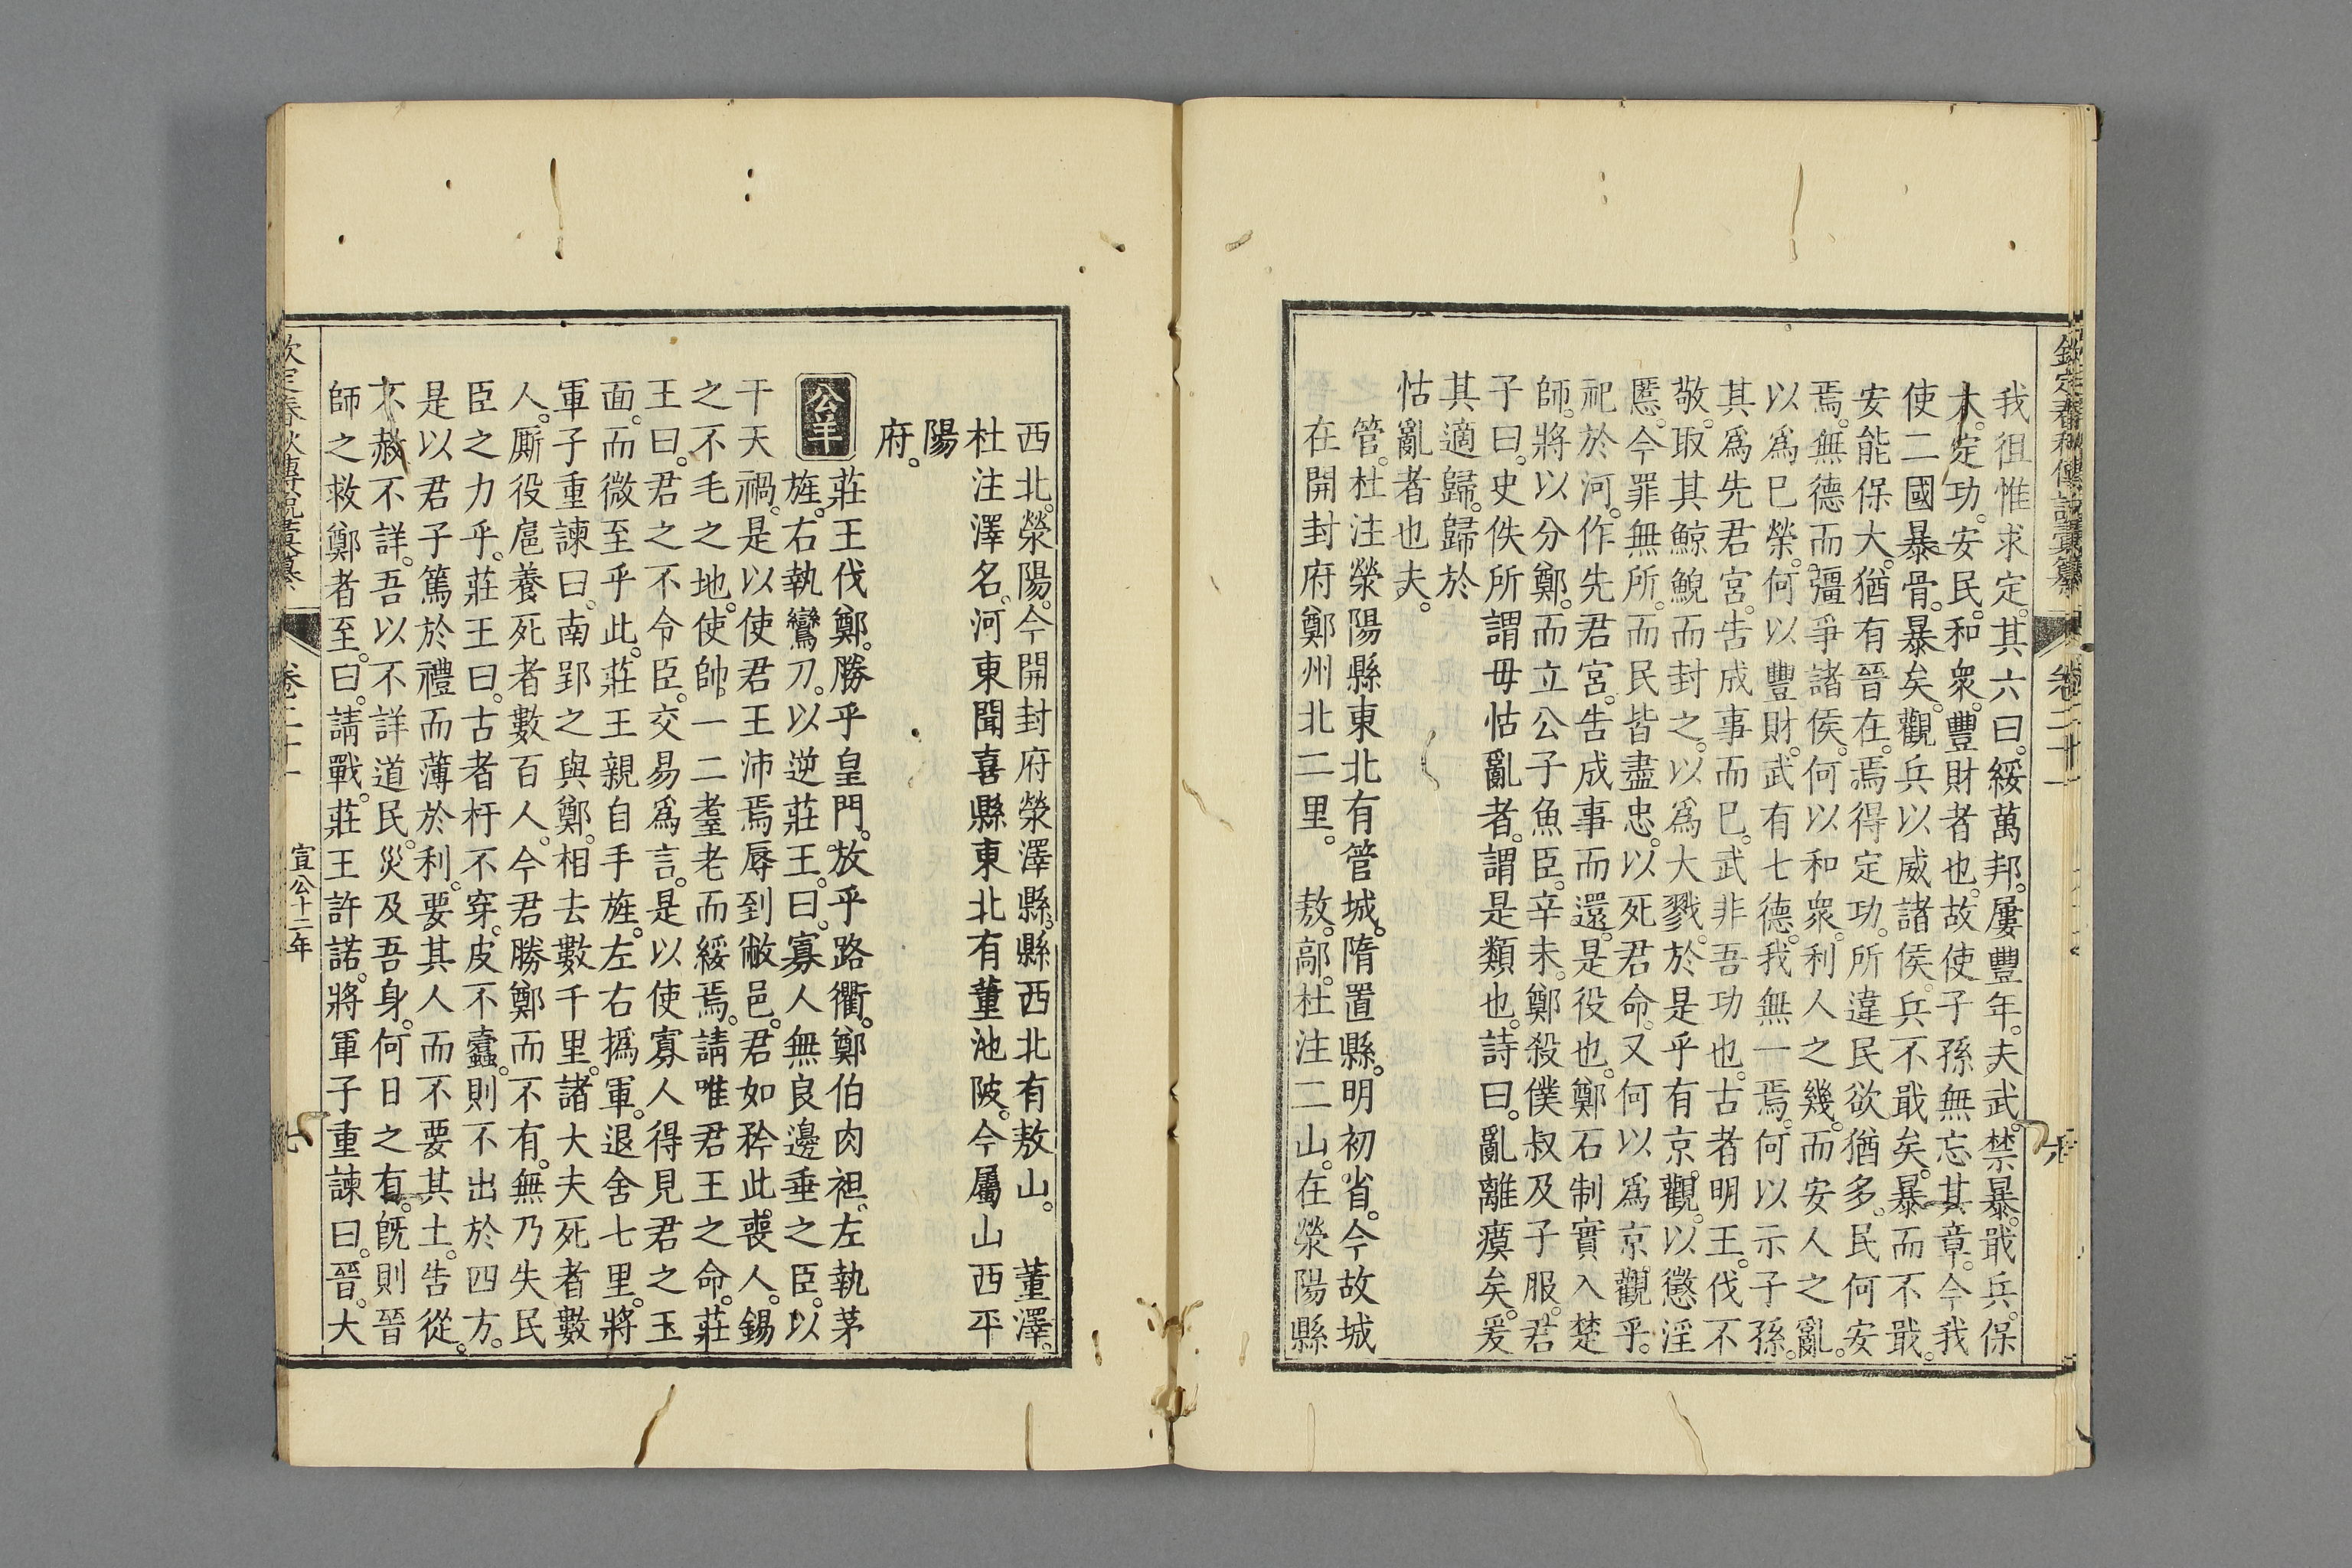 欽定春秋傳說彙纂 卷二十一
我徂惟求定。其六曰。綏萬邦。屢豐年。夫武。禁暴。戢兵。保
大。定功。安民。和衆。豐財者也。故使子孫無忘其章。今我
使二國暴骨。暴矣。觀兵以威諸侯。兵不戢矣。暴而不戢。
安能保大。猶有晉在。焉得定功。所違民欲猶多。民何安
焉。無德而彊爭諸侯。何以和衆。利人之幾。而安人之亂。
以爲己榮。何以豐財。武有七德。我無一焉。何以示子孫。
其爲先君宮。告成事而已。武非吾功也。古者明王。伐不
敬。取其鯨鯢而封之。以爲大戮。於是乎有京觀。以懲淫
慝。今罪無所。而民皆盡忠。以死君命。又何以爲京觀乎。
祀於河。作先君宮。告成事而還。是役也。鄭石制實入楚
師。將以分鄭。而立公子魚臣。辛未。鄭殺僕叔及子服。君
子曰。史佚所謂毋怙亂者。謂是類也。詩曰。亂離瘼矣。爰
其適歸。歸於
怙亂者也夫。
管。杜注滎陽縣東北有管城。隋置縣。明初省。今故城
在開封府鄭州北二里。敖。鄗。杜注二山。在滎陽縣
西北。滎陽。今開封府滎澤縣。縣西北有敖山。董澤。
杜注澤名。河東聞喜縣東北有董池陂。今屬山西平
陽
府。
公羊
莊王伐鄭。勝乎皇門。放乎路衢。鄭伯肉袒。左執茅
旌。右執鸞刀。以逆莊王。曰。寡人無良邊垂之臣。以
干天禍。是以使君王沛焉辱到敝邑。君如矜此。喪人。錫
之不毛之地。使帥。一二耋老而綏焉。請唯君王之命。莊
王曰。君之不令臣。交易爲言。是以使寡人得見君之玉
面。而微至乎此。莊王親自手旌。左右撝軍。退舍七里。將
軍子重諫曰。南郢之與鄭。相去數千里。諸大夫死者數
人。厮役扈養死者數百人。今君勝鄭而不有。無乃失民
臣之力乎。莊王曰。古者杅不穿。皮不蠹。則不出於四方。
是以君子篤於禮而薄於利。要其人而不要其土。告從。
不赦不詳。吾以不詳道民。災及吾身。何日之有。旣則晉
師之救鄭者至。曰。請戰。莊王許諾。將軍子重諫曰。晉。大
欽定春秋傳說彙纂 卷二十一 宣公十二年 七